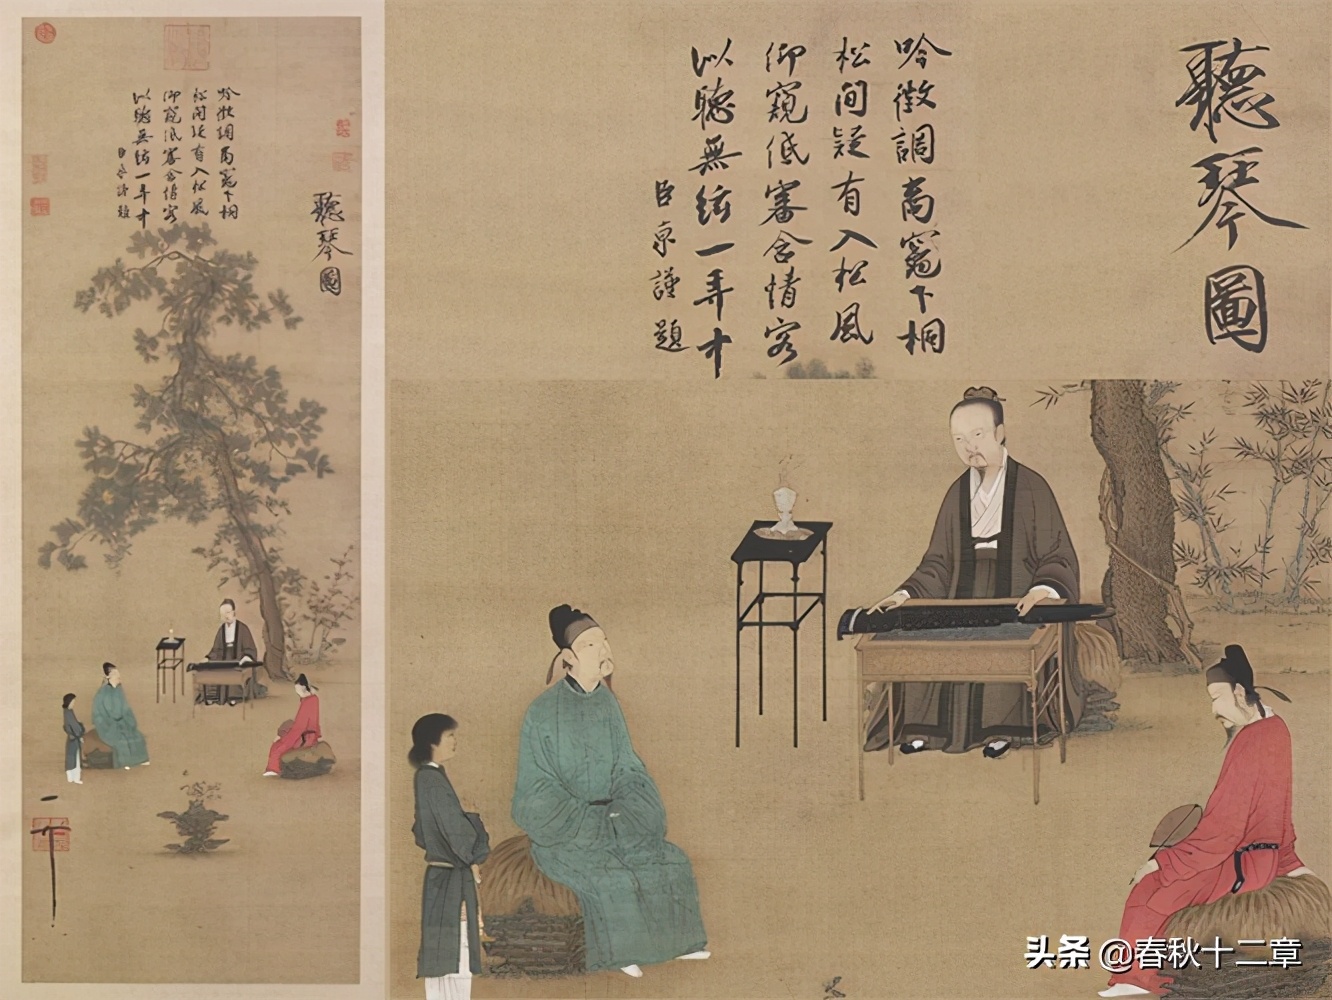 聽琴圖
吟徵調商竈下桐
松間疑有入松風
仰窺低審含情客
以聽無絃一弄中
臣京謹題
聽琴圖
吟徵調商竈下桐
松間疑有入松風
仰窺低審含情客
以聽無絃一弄中
臣京謹題
头条 @春秋十二章